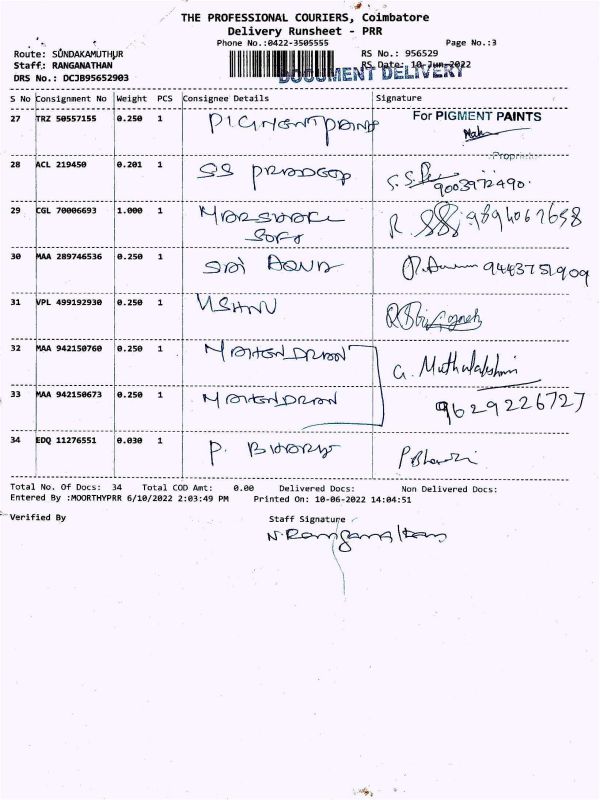 THE PROFESSIONAL COURIERS, Coimbatore
Delivery Runsheet - PRR
Phone No.:0422-3505555 Page No.:3
Route: SUNDAKAMUTHUR RS No.: 956529
Staff.: RANGANATHAN RS Date: 10-Jun-2022
DOCUMENT DELIVERY
DRS No.: DCJB95652903
S No Consignment No Weight PCS Consignee Details Signature
27 TRZ 50557155 0.250 1 PIGMENT PAINTS For PIGMENT PAINTS
28 ACL 219450 0.201 1 SS PRADEEP 9003972490.
29 CGL 70006693 1.000 1 R. 9894067658
SOFA
30 MAA 289746536 0.250 1 SRI AQUA 9443751909
31 VPL 499192930 0.250 1 VISHNU
32 MAA 942150760 0.250 1 MAHENDRAN G. Muthulakshmi
33 MAA 942150673 0.250 1 MAHENDRAN 9629226727
34 EDQ 11276551 0.030 1 P. P
Total No. Of Docs: 34 Total COD Amt: 0.00 Delivered Docs: Non Delivered Docs:
Entered By :MOORTHYPRR 6/10/2022 2:03:49 PM Printed On: 10-06-2022 14:04:51
Verified By Staff Signature
N. Ranganathan